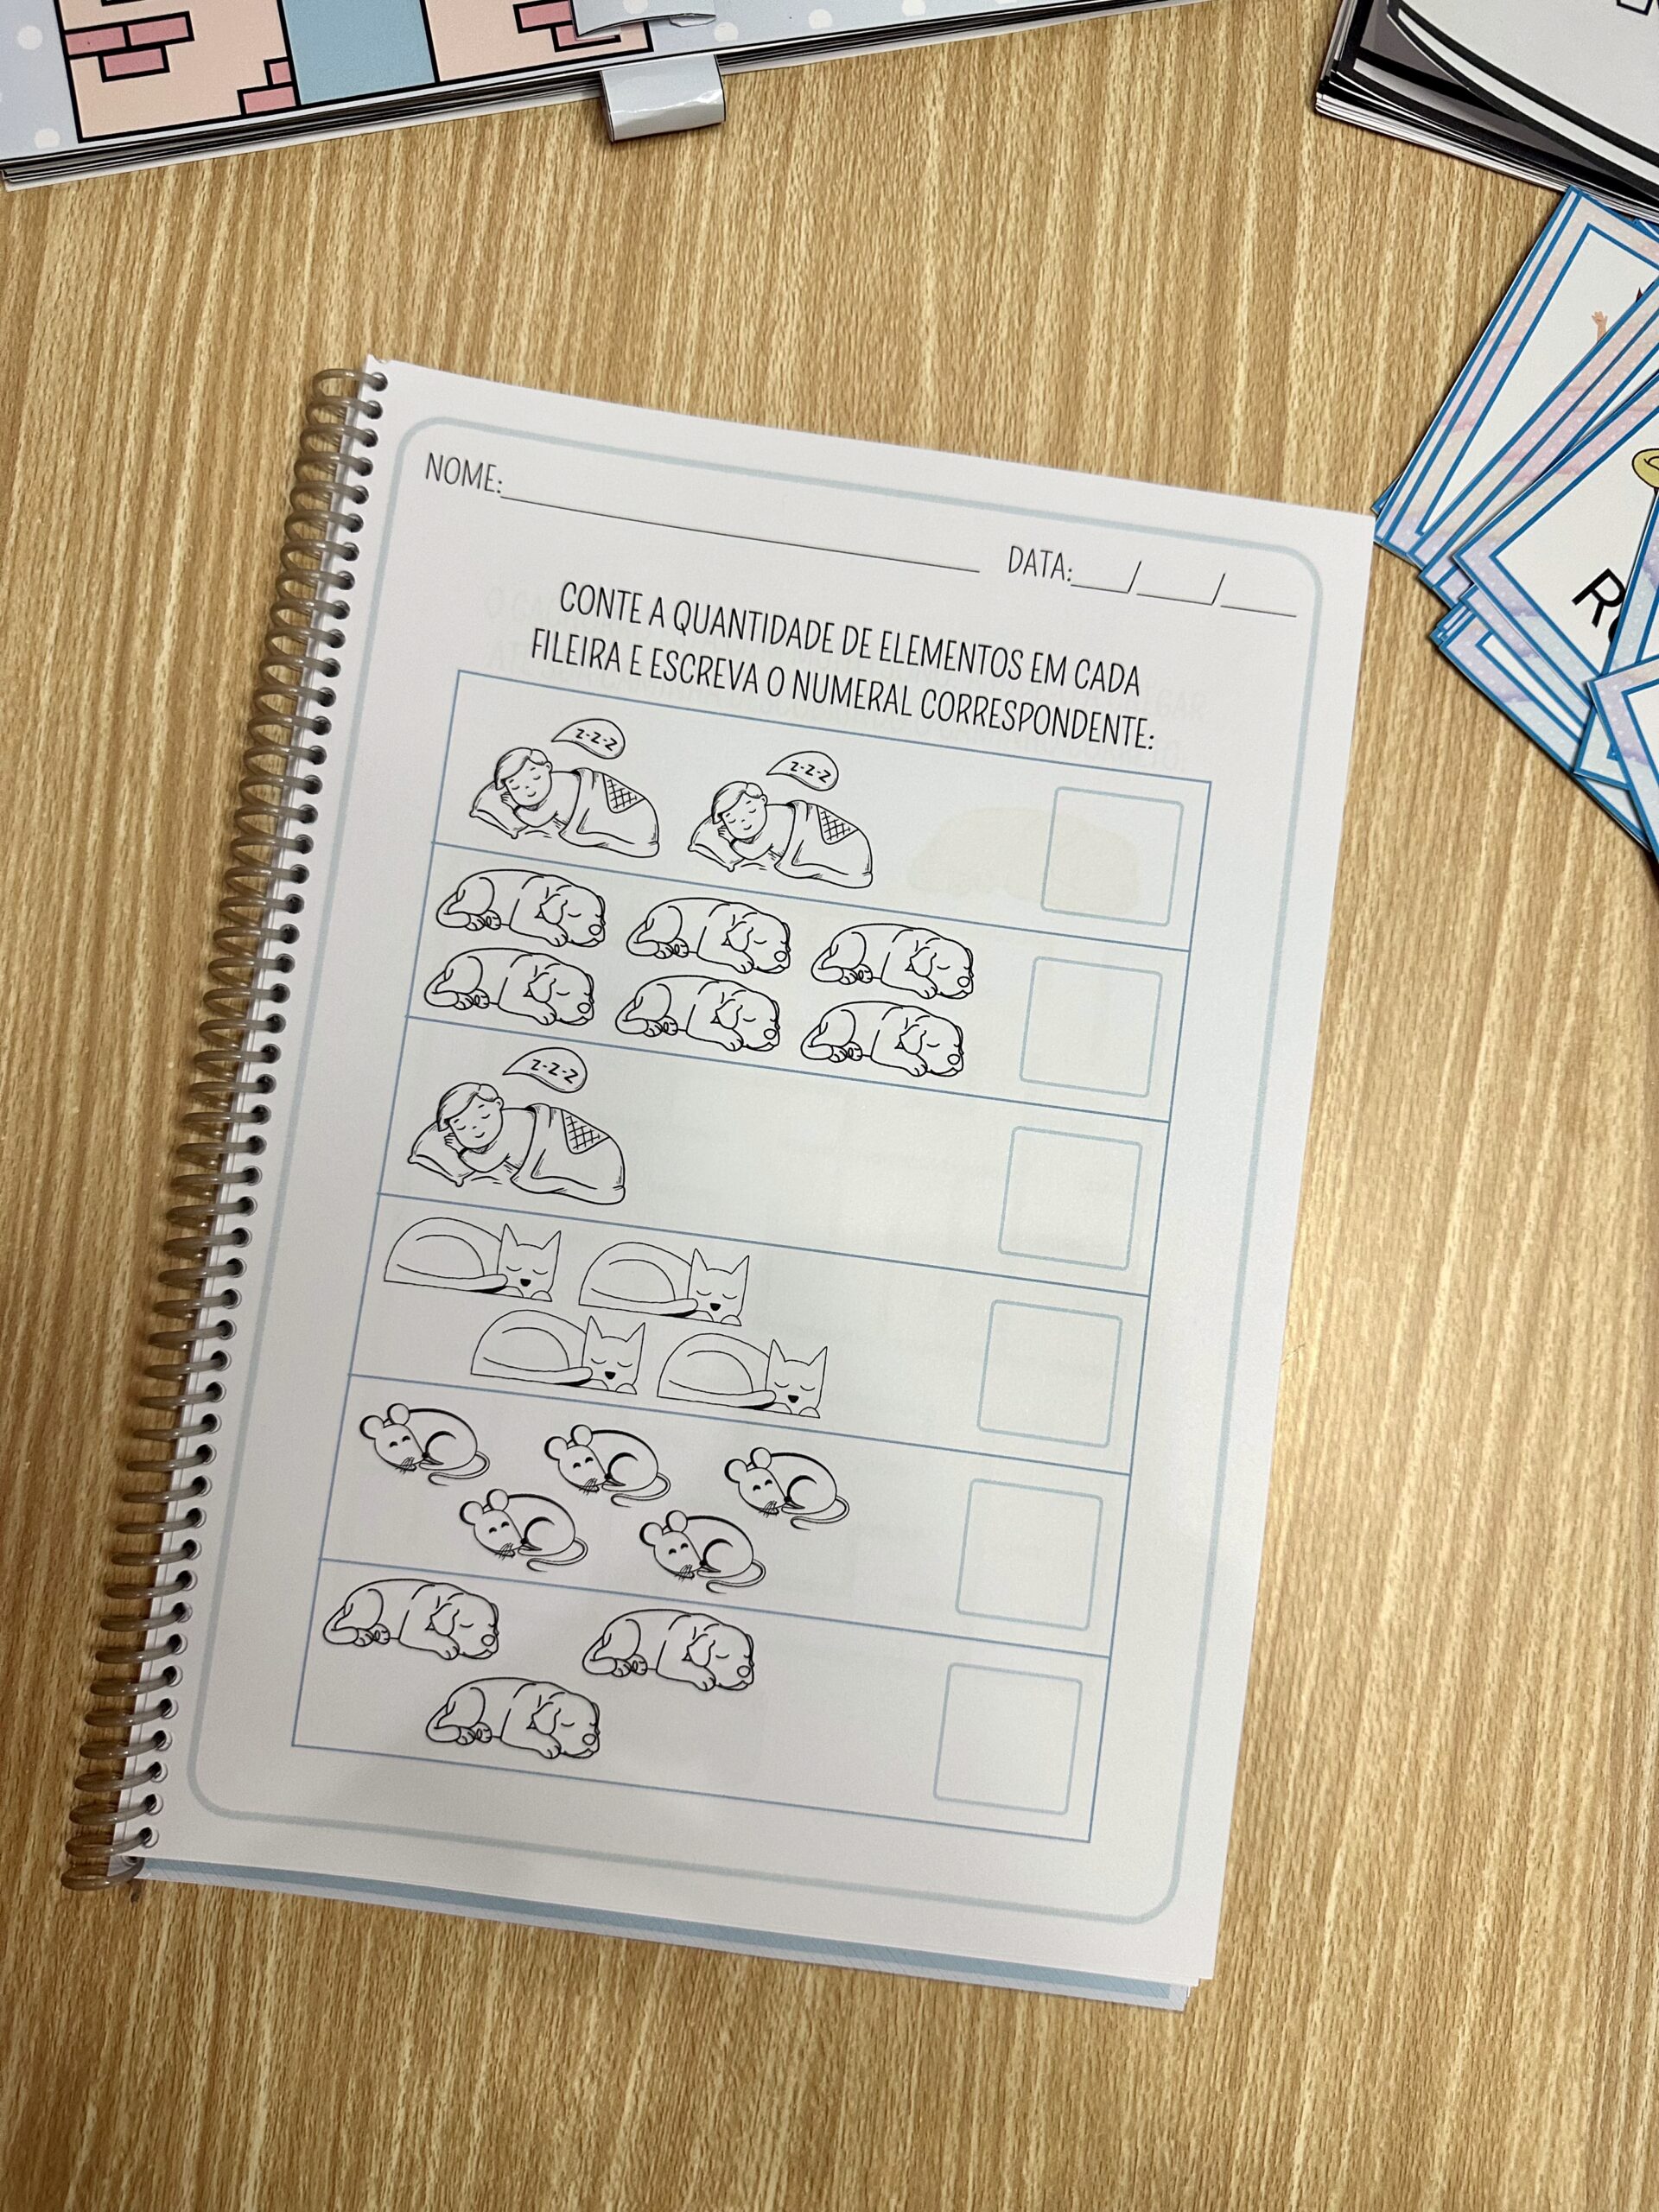 NOME:
DATA:___/___/___
CONTE A QUANTIDADE DE ELEMENTOS EM CADA
FILEIRA E ESCREVA O NUMERAL CORRESPONDENTE:
Z-Z-Z
Z-Z-Z
Z-Z-Z